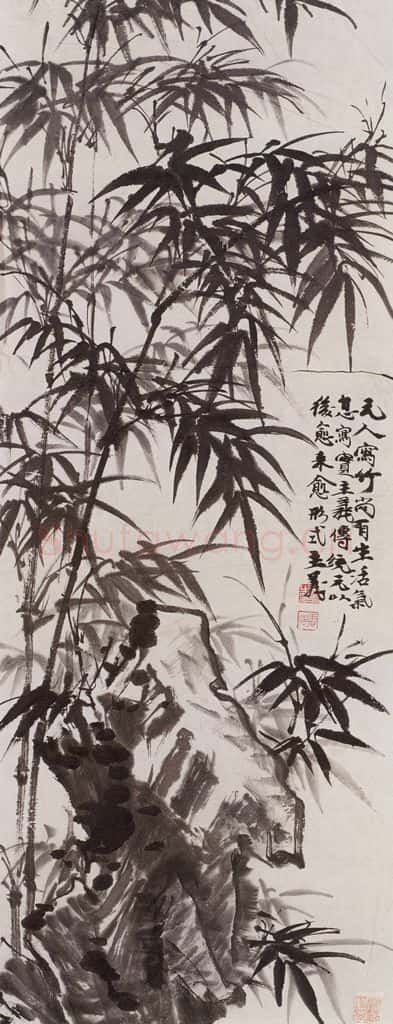 元人寫竹尚有生活氣
息寫實主義傳統元以
後愈來愈形式主義